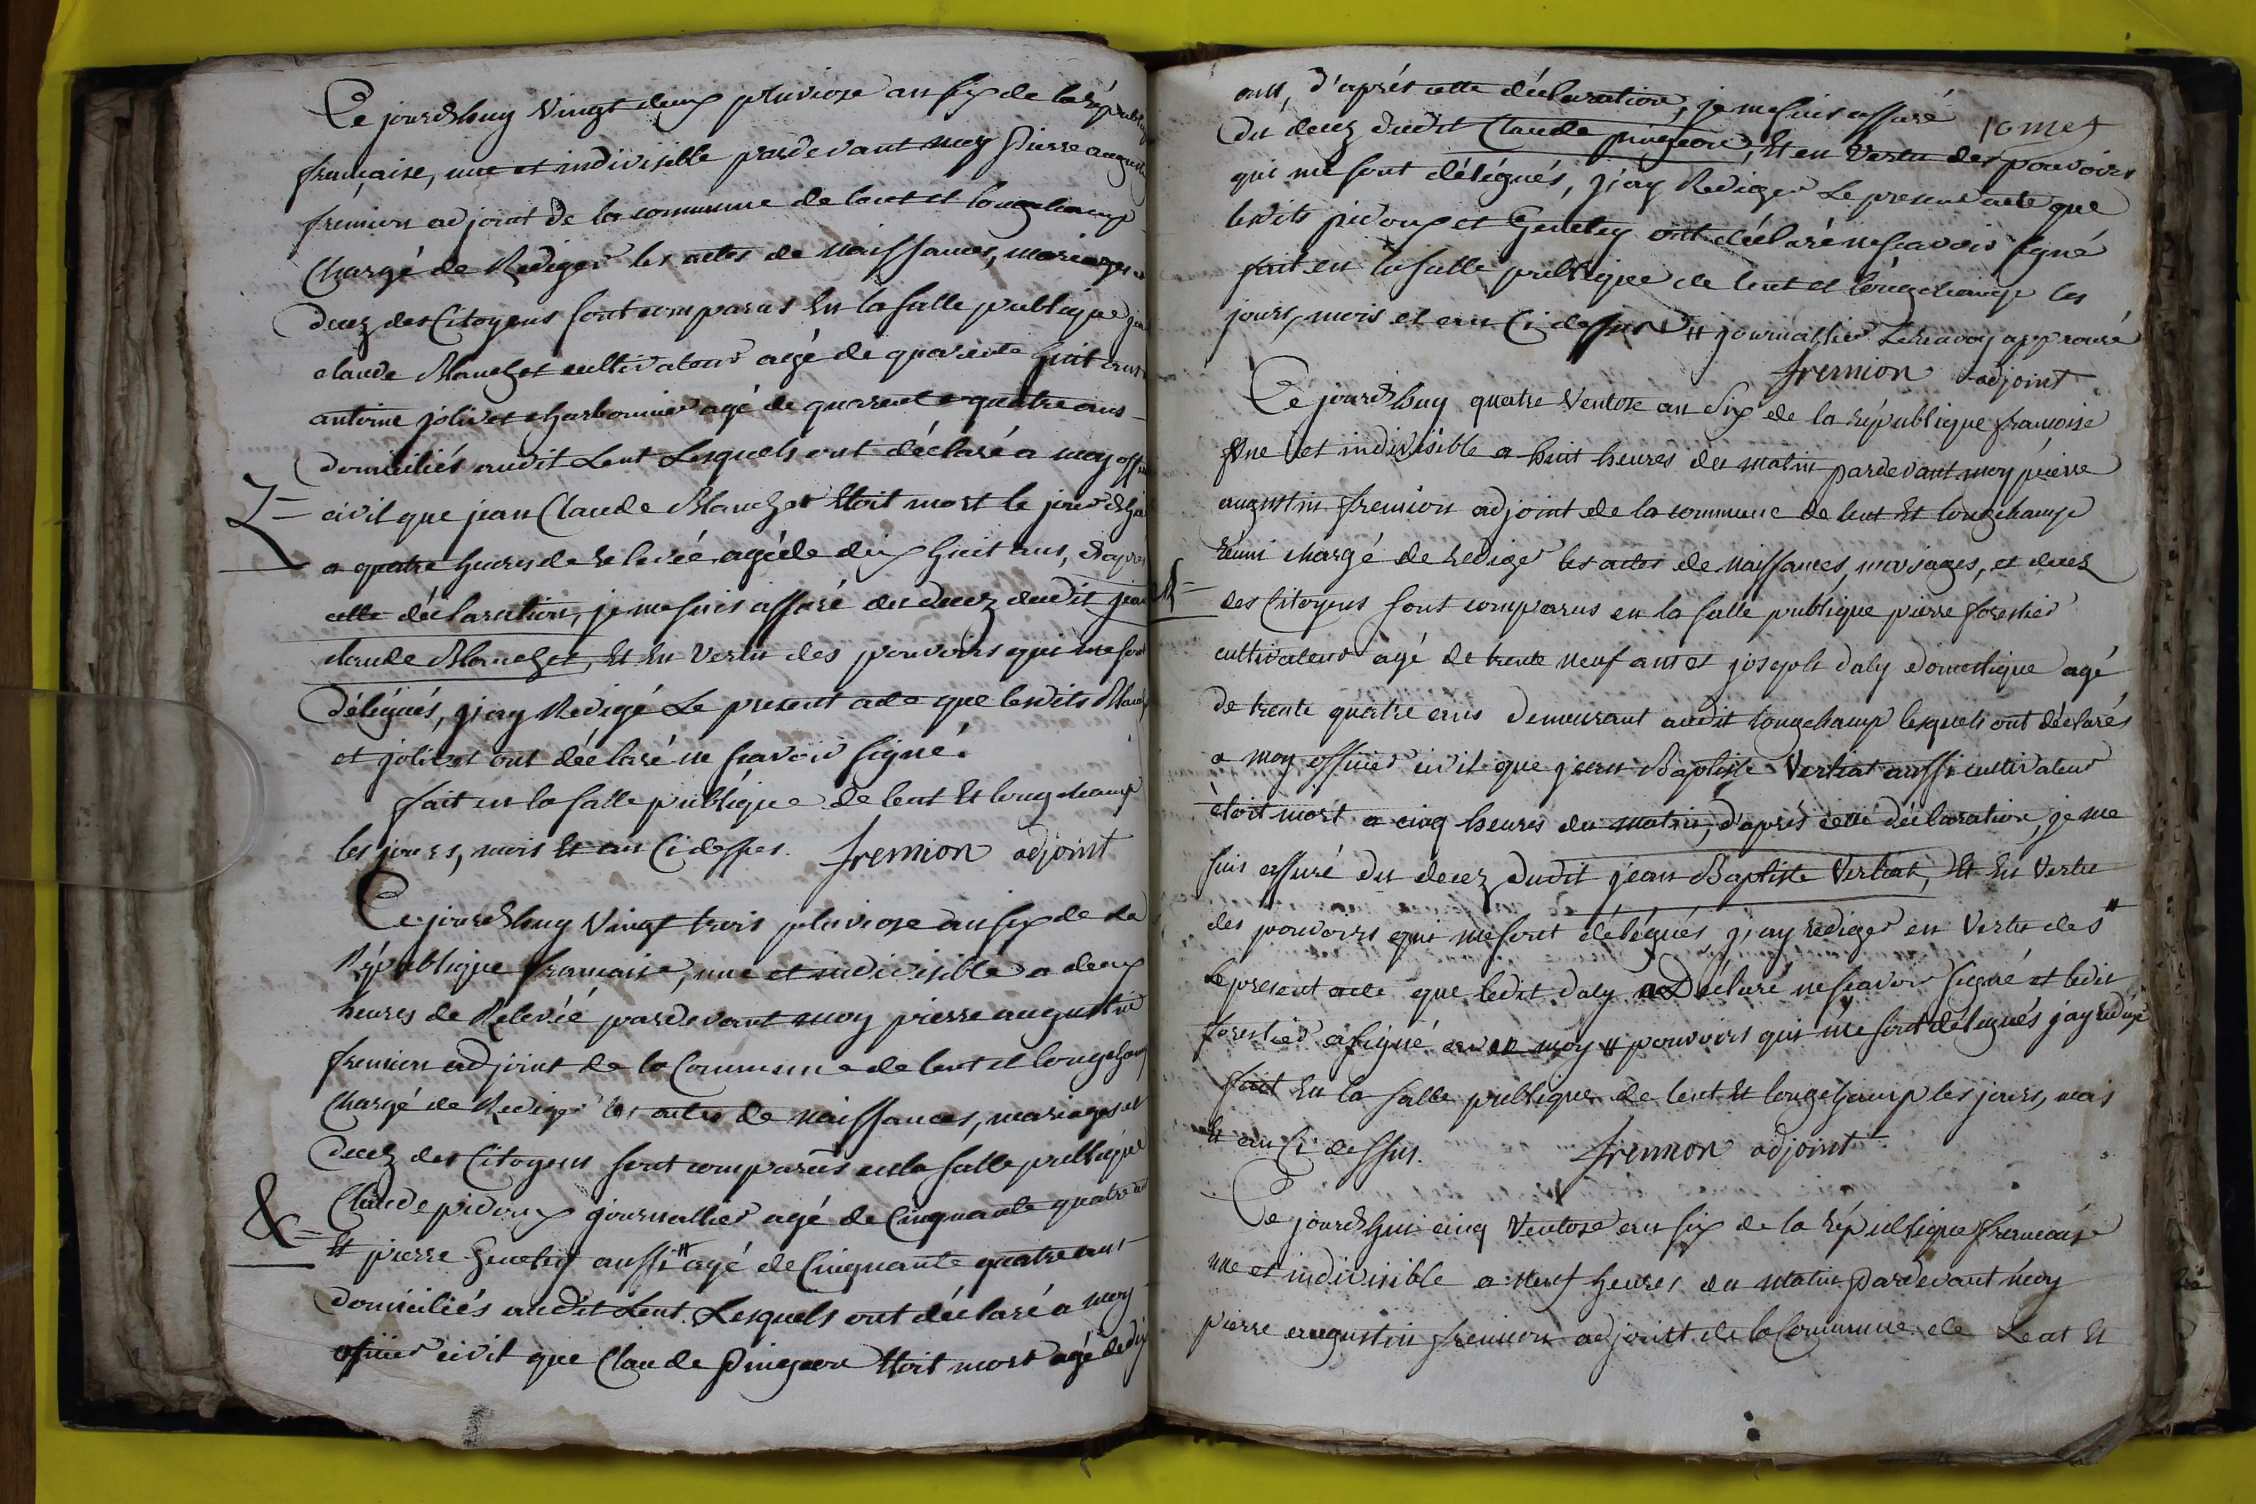 Ce jourdhuy Vingt deux pluviose an six de la répub
française, une et indivisible pardevant moy Pierre augus
fremion adjoint de la commune de lent et longchamp
Chargé de Rediger les actes de Naissances, mariages
decez des Citoyens sont comparus En la salle publique
claude Blanchet cultivateur agé de quarente huit ans
antoine jolivet charbonnier agé de quarent e quatre ans
domiciliés audit Lent Lesquels ont déclaré a moy
Z= civil que jean Claude Blanchet Etoit mort le jour
a quatre heures de Relevée agé de dix huit ans, d'après
cette déclaration, je me suis assuré du decez dudit jean
claude Blanchet, Et En Vertu des pouvoirs qui me sont
délégués, j'ay Redigé Le present acte que lesdits
et jolivet ont déclaré ne scavoir signé.
fait en la salle publique de lent Et longchamp
les jours, mois Et an Ci dessus. fremion adjoint
Ce jourdhuy Vingt trois pluviose an six de la
République française, une et indivisible a deux
heures de Relevée pardevant moy pierre augustin
fremion adjoint de la Commune de lent et longchamp
Chargé de Rediger les actes de naissances, mariages et
decez des Citoyens sont comparus en la salle publique
Claude pidoux journallier agé de Cinquante quatre
&= Et pierre Genetey aussi # agé de Cinquante quatre ans
domiciliés audit Lent. Lesquels ont déclaré a moy
officier civil que Claude Pingeon Etoit mort agé de dix
ans, d'après cette déclaration, je me suis assuré
du decez dudit Claude pingeon, Et en Vertu des pouvoirs
qui me sont délégués, j'ay Rediger Le present acte que
lesdits pidoux et Genetey ont déclaré ne scavoir signé
fait en la salle publique de lent et longchamp les
jours, mois et an Ci dessus # journallier approuvé
fremion adjoint
Ce jourdhuy quatre Ventose an Six de la république françoise
Une et indivisible a huit heures du matin pardevant moy pierre
augustin fremion adjoint de la commune de lent Et longchamp
réuni chargé de rediger les actes de naissances, mariages, et decez
des Citoyens sont comparus en la salle publique pierre forestier
cultivateur agé de trente neuf ans et joseph daly domestique agé
de trente quatre ans demeurant audit longchamp lesquels ont déclarés
a moy officier civil que jean Baptiste Vertrat aussi cultivateur
étoit mort a cinq heures du matin, d'après cette déclaration, je me
suis assuré du decez dudit jean Baptiste Vertrat, Et En Vertu
des pouvoirs qui me sont délégués, j'ay rediger en Vertu des #
le present acte que ledit daly a Déclaré ne scavoir signé et ledit
forestier a signé avec moy # pouvoirs qui me sont délégués j'ay redigé
fait En la salle publique de lent Et longchamp les jours, mois
Et an Ci dessus. fremion adjoint
Ce jourdhui cinq Ventose an six de la république française
une et indivisible a neuf heures du matin pardevant moy
pierre augustin fremion adjoint de la Commune de Lent Et